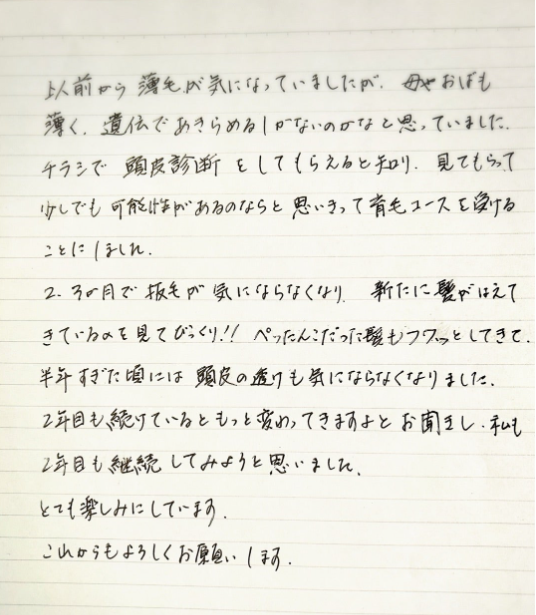 以前から薄毛が気になっていましたが、母やおばも
薄く、遺伝であきらめるしかないのかなと思っていました。
チラシで 頭皮診断 をしてもらえると知り、見てもらって
少しでも可能性があるのならと思いきって育毛コースを受ける
ことにしました。
2、3か月で抜毛が気にならなくなり、新たに髪がはえて
きているのを見てびっくり!! ぺったんこだった髪もフワッとしてきて、
半年すぎた頃には頭皮の透けも気にならなくなりました。
2年目も続けているともっと変わってきますよとお聞きし、私も
2年目も継続してみようと思いました。
とても楽しみにしています。
これからもよろしくお願いします。